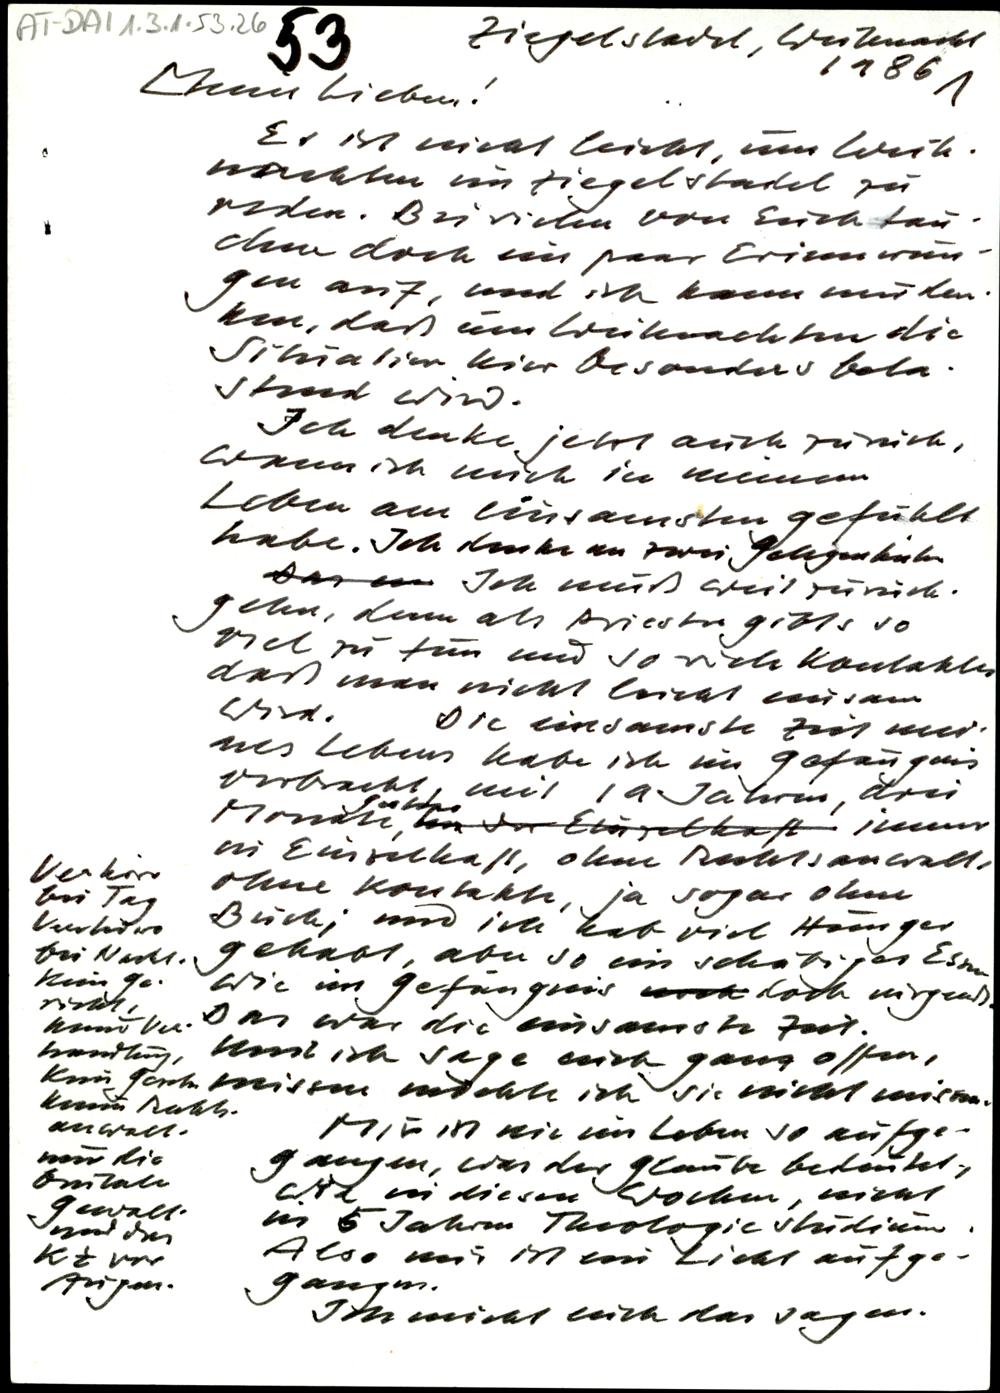 AT-DAI 1.3.1.53.26
53
Ziegelstadel, Weihnacht
1986
1
Meine Lieben!
Es ist nicht leicht, um Weih-
nachten im Ziegelstadel zu
reden. Bei vielen von Euch tau-
chen doch ein paar Erinnerun-
gen auf, und ich kann mir den-
ken, daß um Weihnachten die
Situation hier besonders bela-
stend wird.
Ich denke jetzt auch zurück,
wann ich mich in meinem
Leben am einsamsten gefühlt
habe. Ich denke an zwei Gelegenheiten
Ich muß weit zurück-
gehen, denn als Priester gibts so
viel zu tun und so viele Kontakte
daß man nicht leicht einsam
wird. Die einsamste Zeit mei-
nes Lebens habe ich im Gefängnis
verbracht, mit 19 Jahren, drei
Monate, in der Einzelhaft immer
in Einzelhaft, ohne Rechtsanwalt,
ohne Kontakte, ja sogar ohne
Buch; und ich hab viel Hunger
gehabt, aber so ein schäbiges Essen
wie im Gefängnis noch doch nirgends.
Das war die einsamste Zeit.
Und ich sage euch ganz offen,
missen möchte ich sie nicht missen.
Mir ist nie im Leben so aufge-
gangen, was der Glaube bedeutet,
wie in diesen Wochen, nicht
in 5 Jahren Theologiestudium.
Also mir ist ein Licht aufge-
gangen.
Ich möcht euch das sagen.
Verhöre
bei Tag
Verhöre
bei Nacht.
Kein Ge-
richt,
keine Ver-
handlung,
Kein Gesetz
keinen Rechts-
anwalt.
nur die
brutale
Gewalt.
und das
KZ vor
Augen.